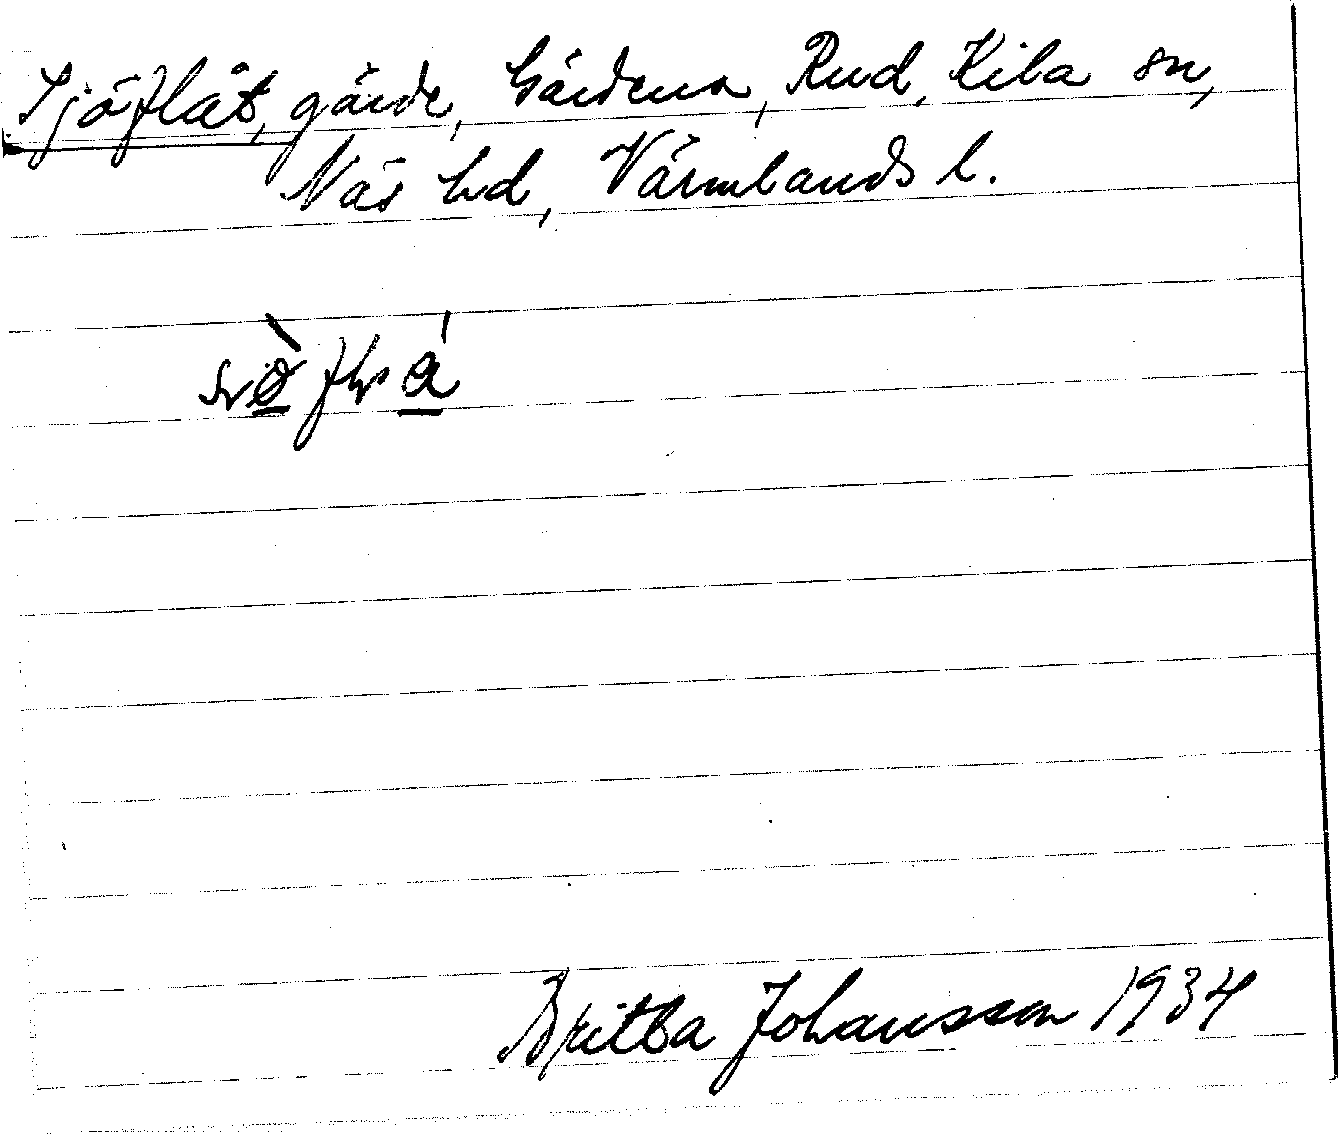 Sjöflåt, gärde, Gärdena, Rud, Kila sn,
Näs hd, Värmlands l.
Britta Johansson 1934